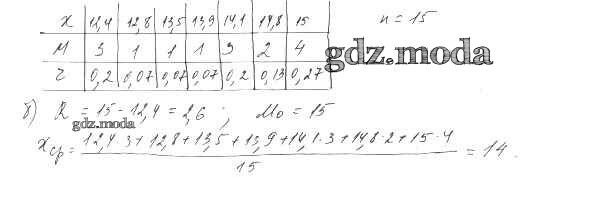 X 12,4 12,8 13,5 13,9 14,1 14,8 15 n = 15
M 3 1 1 1 3 2 4
gdz.moda
r 0,2 0,07 0,07 0,07 0,2 0,13 0,27
б) R = 15 - 12,4 = 2,6 ; Mo = 15
gdz.moda
Xср = 12,4·3 + 12,8 + 13,5 + 13,9 + 14,1·3 + 14,8·2 + 15·4
15
= 14.